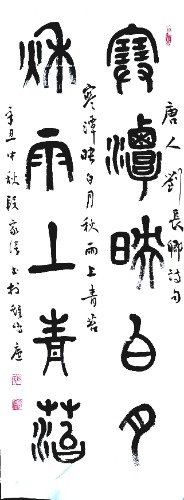 唐人劉長卿詩句
寒潭映白月
寒潭映白月秋雨上青苔
秋雨上青苔
辛丑中秋段家書於廬